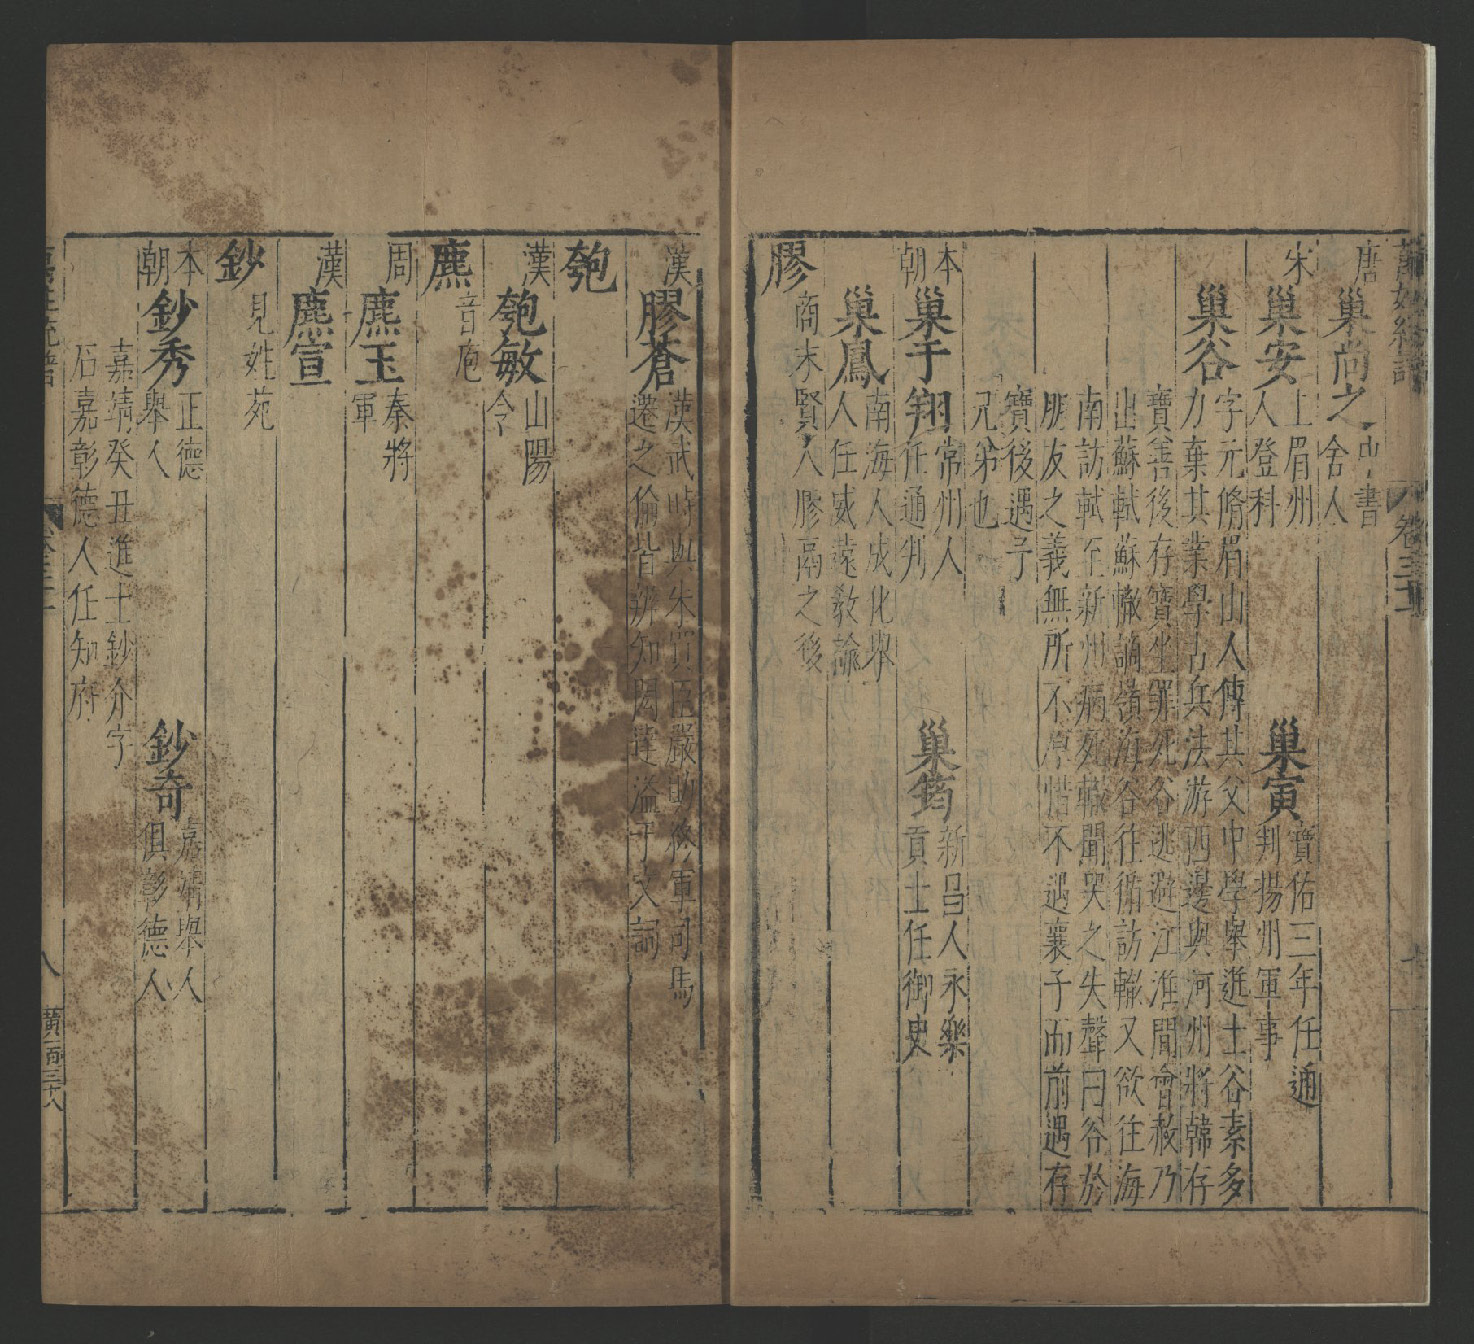 萬姓統譜 卷三十三
唐 巢尚之 中書
舍人
宋 巢安 上眉州 巢寅 寶佑三年任通
人登科 判揚州軍事
巢谷 字元脩眉山人傳其父中學舉進士谷素多
力棄其業學古兵法游西邊與河州將韓存
寶善後存寶坐罪死谷逃避江淮間會赦乃
出蘇軾蘇轍謫嶺海谷往循訪轍又欲往海
南訪軾至新州病死轍聞哭之失聲曰谷於
朋友之義無所不厚惜不遇襄子而前遇存
寶後遇予
兄弟也
本朝 巢于翔 常州人 巢筠 新昌人永樂
任通判 貢士任御史
巢鳳 南海人成化舉
人任威遠教諭
膠 商末賢人膠鬲之後
漢 膠蒼 漢武時與朱買臣嚴助
遷之倫皆
匏
漢 匏敏 山陽
令
麃 音庖
周 麃玉 秦將
軍
漢 麃宣
鈔 見姓苑
本朝 鈔秀 正德 鈔奇 嘉靖舉人
舉人 俱彰德人
嘉靖癸丑進士鈔介字
石嘉彰德人任知府
八 黃一百三十八